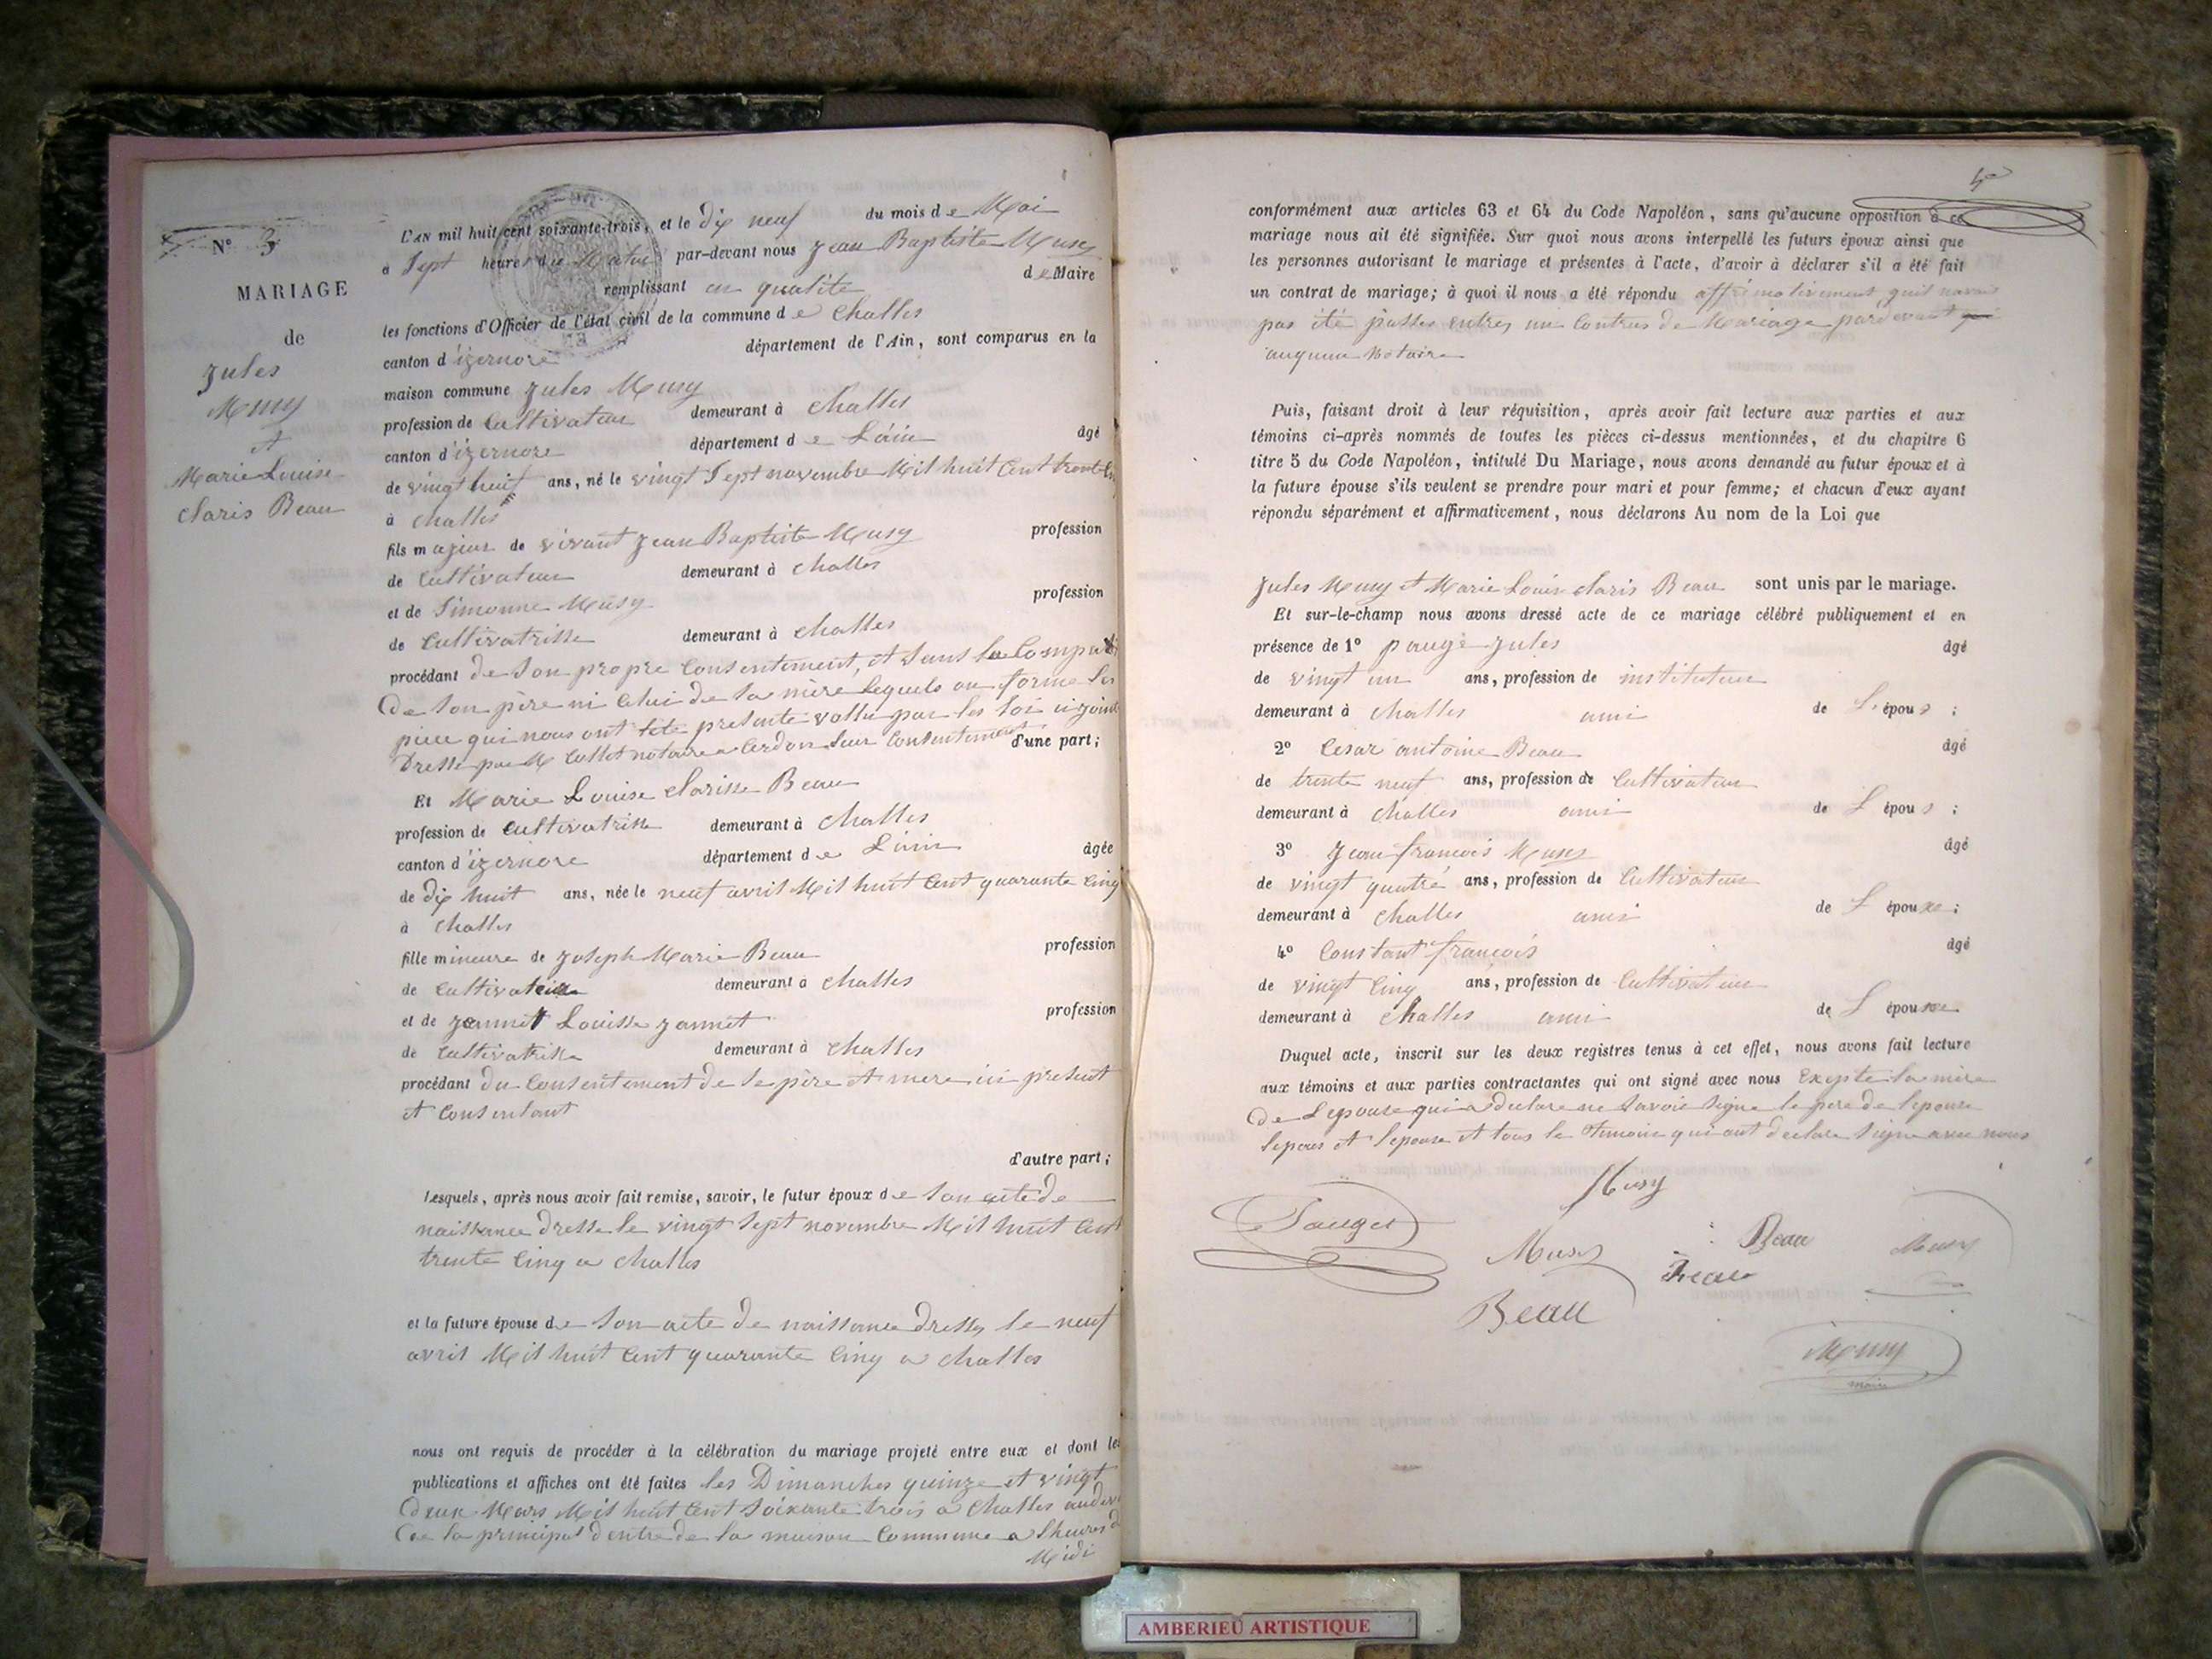 N° 3
MARIAGE
de
Jules
Musy
et
Marie Louise
claris Beau
L'AN mil huit cent soixante-trois, et le dix neuf du mois de Mai
a Sept heures du Matin par-devant nous Jean Baptiste Musy
remplissant en qualité de Maire
les fonctions d'Officier de l'état civil de la commune de Challes
canton d'izernore département de l'Ain, sont comparus en la
maison commune Jules Musy
profession de Cultivateur demeurant à Challes
canton d'izernore département de Láin âgé
de vingt huit ans, né le vingt Sept novembre Mil huit Cent trente
à Challes
fils majeur de vivant Jean Baptiste Musy profession
de Cultivateur demeurant à Challes
et de Simonne Musy profession
de Cultivatrisse demeurant à Challes
procédant de Son propre Consentement, et Sans
de Son père ni Celui de Sa mère lequels on forme
piece qui nous ont été presente par les
Dresse par M notaire a Cerdon Leur Consentement d'une part;
Et Marie Louise clarisse Beau
profession de Cultivatrisse demeurant à Challes
canton d'izernore département de Láin âgée
de dix huit ans, née le neuf avril Mil huit Cent quarante Cinq
à Challes
fille mineure de Joseph Marie Beau profession
de demeurant à Challes
et de Jannet Louisse Jannet profession
de Cultivatrisse demeurant à Challes
procédant du Consentement de Se père et mere ici present
et Consentant
d'autre part;
Lesquels, après nous avoir fait remise, savoir, le futur époux de Son acte de
naissance dresse le vingt Sept novembre Mil huit Cent
trente Cinq a Challes
et la future épouse de Son acte de naissance dresse le neuf
avril Mil huit Cent quarante Cinq a Challes
nous ont requis de procéder à la célébration du mariage projeté entre eux et dont les
publications et affiches ont été faites les Dimanches quinze et vingt
deux Mars Mil huit Cent Soixante trois a Challes
de la principal d'entre de la maison Commune a
Midi
4
conformément aux articles 63 et 64 du Code Napoléon, sans qu'aucune opposition à ce
mariage nous ait été signifiée. Sur quoi nous avons interpellé les futurs époux ainsi que
les personnes autorisant le mariage et présentes à l'acte, d'avoir à déclarer s'il a été fait
un contrat de mariage; à quoi il nous a été répondu
pas été passer entres un Contras de Mariage pardevant
auqunne Notaire
Puis, faisant droit à leur réquisition, après avoir fait lecture aux parties et aux
témoins ci-après nommés de toutes les pièces ci-dessus mentionnées, et du chapitre 6
titre 5 du Code Napoléon, intitulé Du Mariage, nous avons demandé au futur époux et à
la future épouse s'ils veulent se prendre pour mari et pour femme; et chacun d'eux ayant
répondu séparément et affirmativement, nous déclarons Au nom de la Loi que
Jules Musy et Marie Louis claris Beau sont unis par le mariage.
Et sur-le-champ nous avons dressé acte de ce mariage célébré publiquement et en
présence de 1° Jules âgé
de vingt un ans, profession de instituteur
demeurant à Challes ami de L'époux;
2° Cesar antoine Beau âgé
de trente neuf ans, profession de Cultivateur
demeurant à Challes ami de L époux;
3° Jean françois Musy âgé
de vingt quatre ans, profession de Cultivateur
demeurant à Challes ami de L épouxe;
4° Constant françois âgé
de vingt Cinq ans, profession de Cultivateur
demeurant à Challes ami de L épouse
Duquel acte, inscrit sur les deux registres tenus à cet effet, nous avons fait lecture
aux témoins et aux parties contractantes qui ont signé avec nous Exepte la mère
de Lepouse qui a declare ne Savoir Signe le pere de lepouse
lepoux et lepouse et tous le temoin qui ont declare Signe avec nous
Musy
Musy
Beau
Musy
Beau
Musy
maire
AMBERIEU ARTISTIQUE